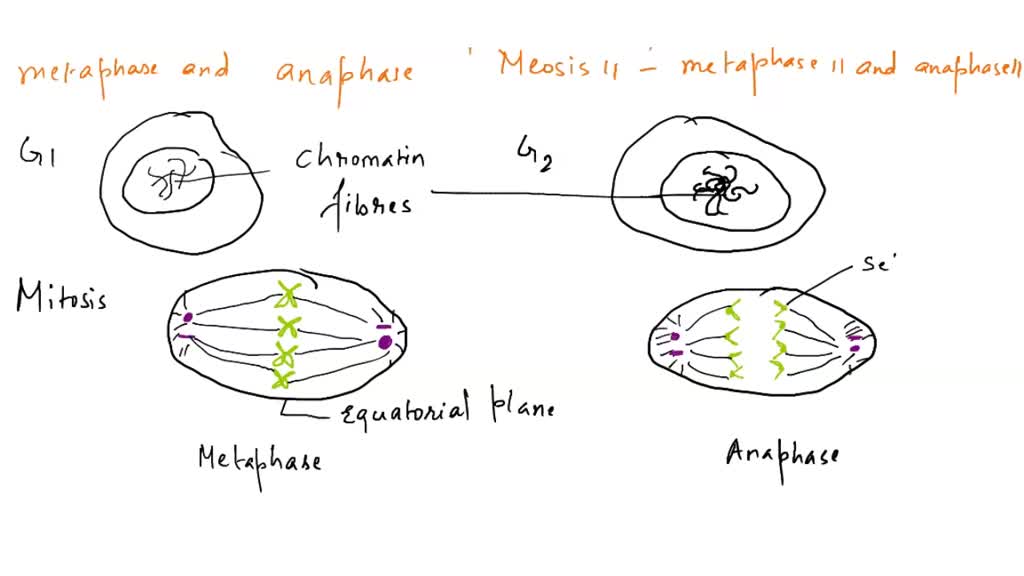 metaphase and anaphase ' Meosis II - metaphase II and anaphase II
G1 Chromatin fibres G2
Se'
Mitosis
Equatorial plane
Metaphase Anaphase